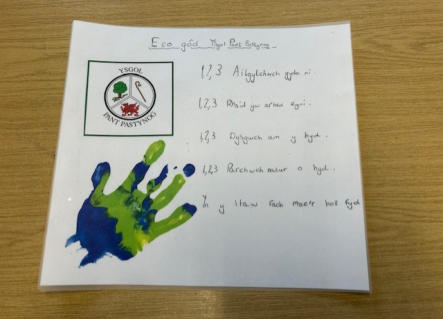 Eco gód Ysgol Pant Pastynog
YSGOL
PANT PASTYNOG
1,2,3 Ailgylchwch gyda ni.
1,2,3 Rhaid yw arbed egni.
1,2,3 Dysgwch am y byd.
1,2,3 Parchwch natur o hyd.
Yn y llaw fach mae'r holl fyd